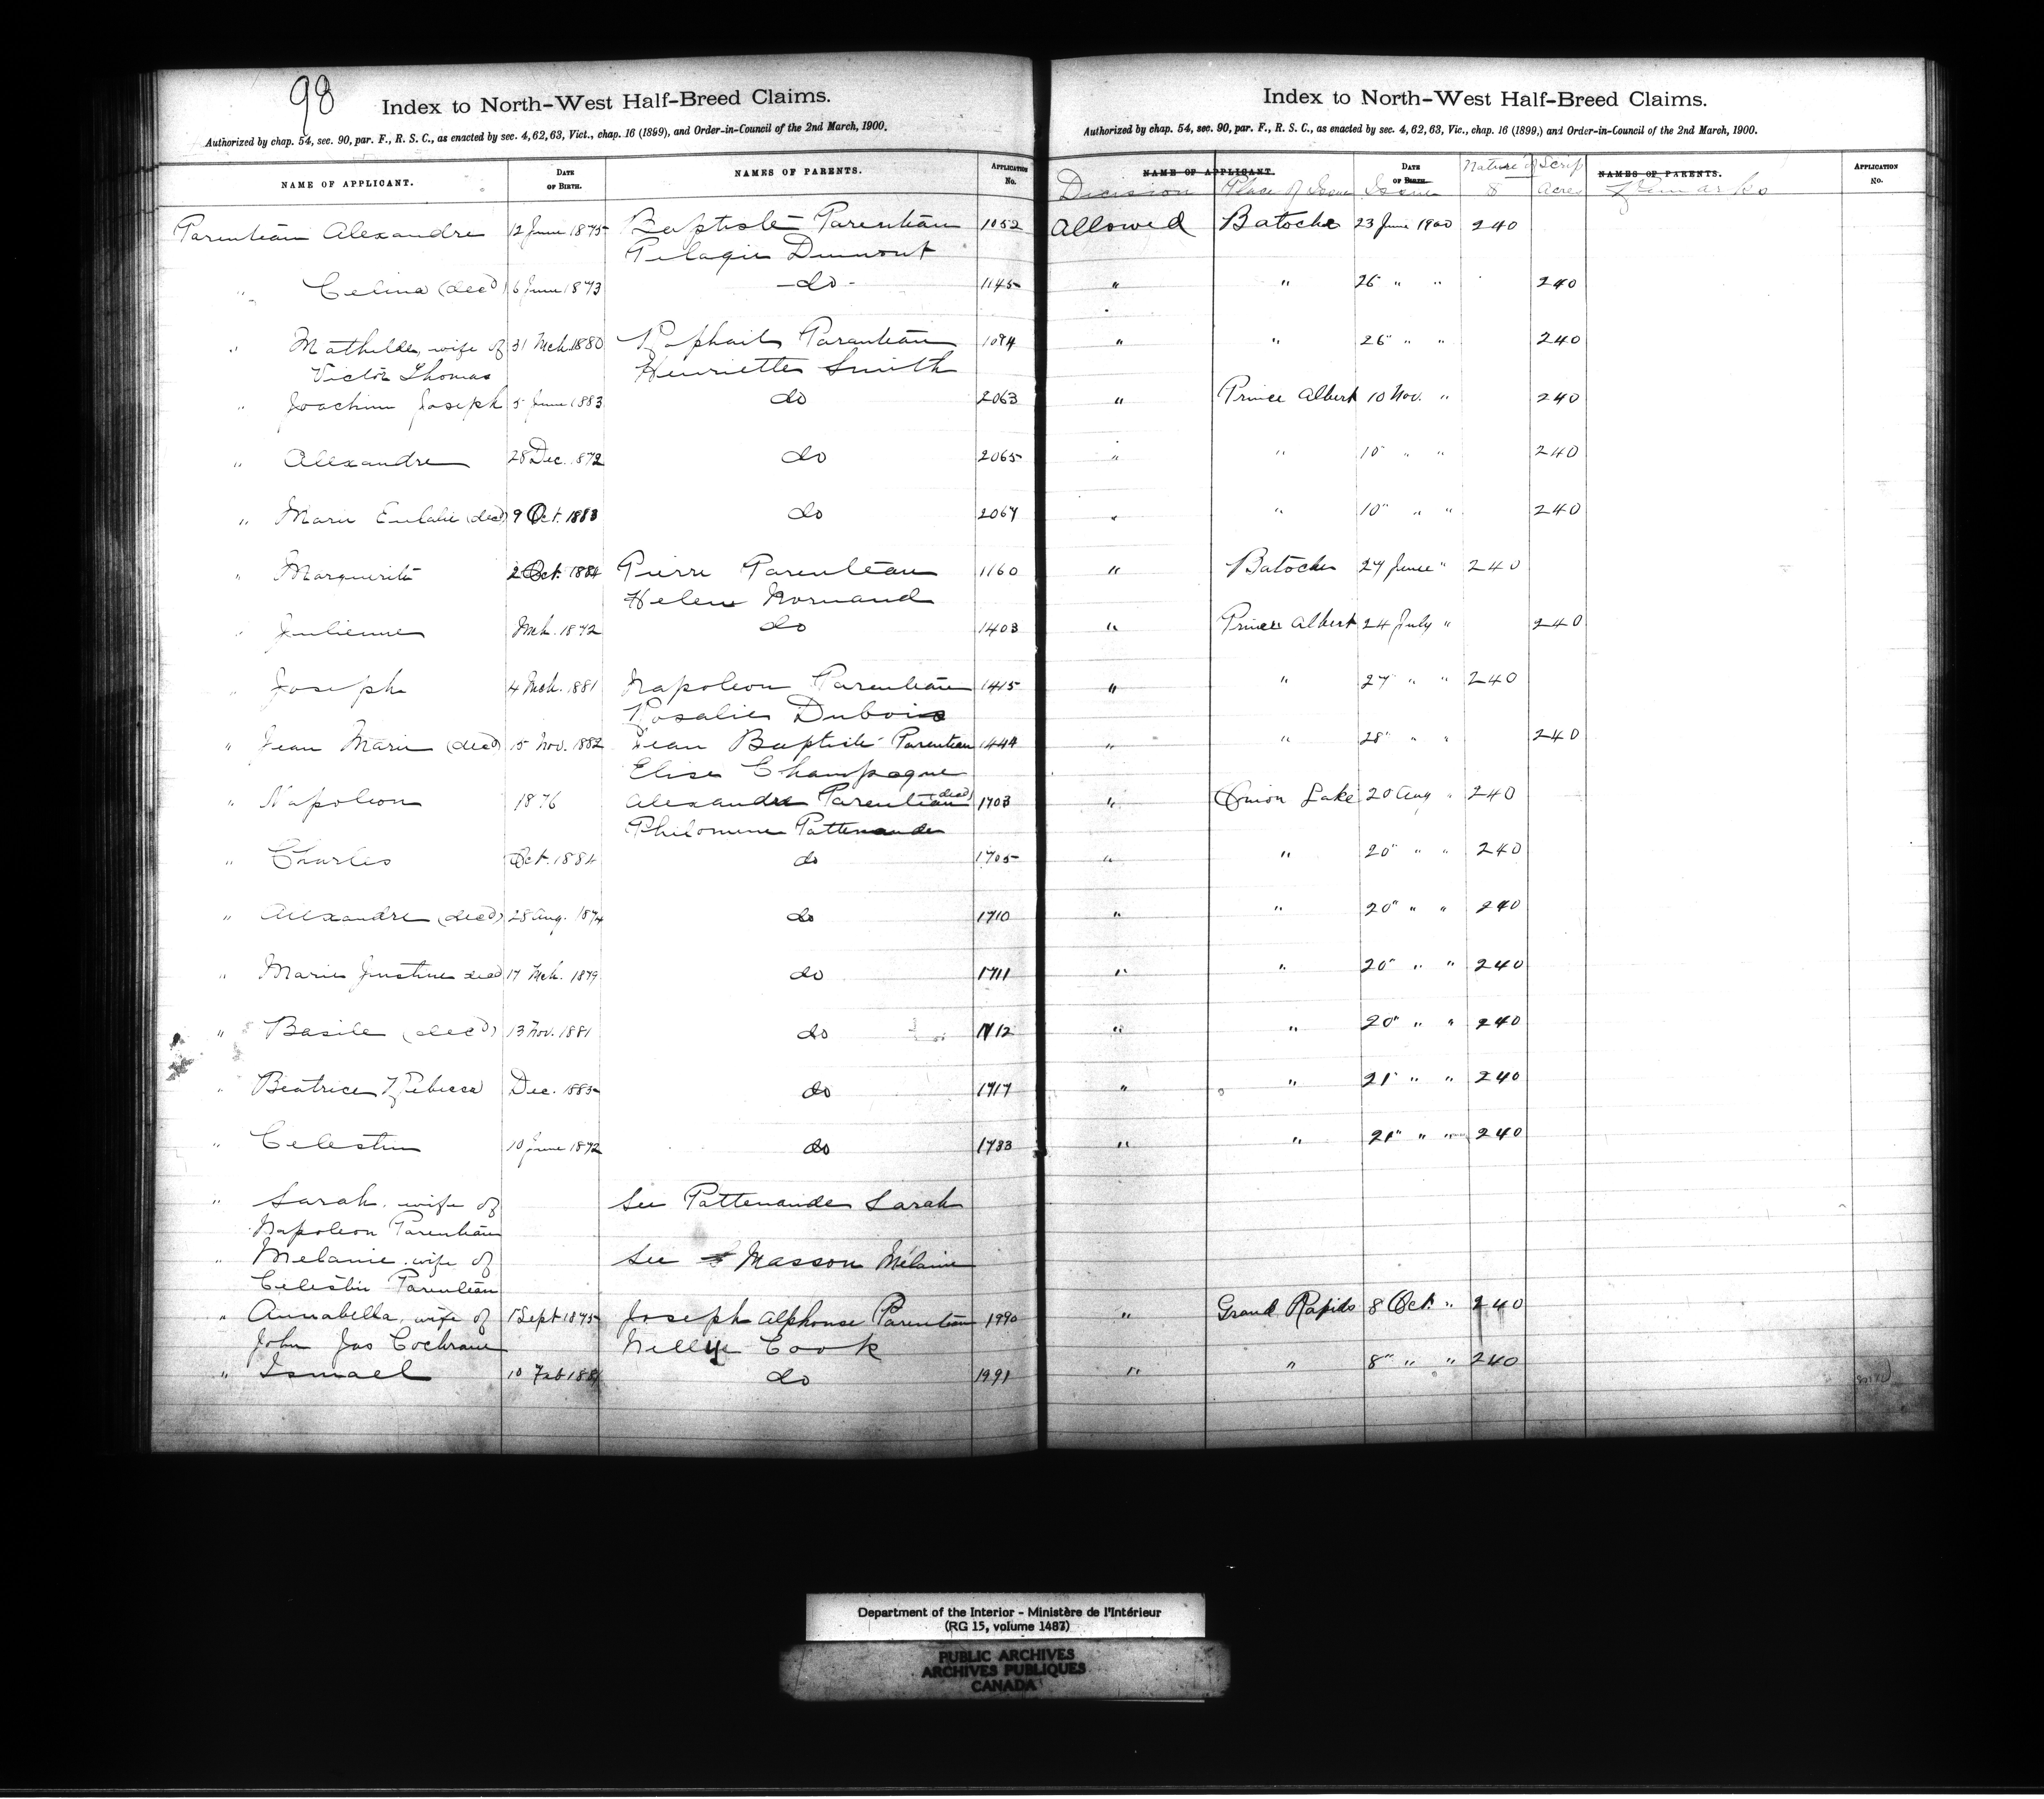 98
Index to North-West Half-Breed Claims.
Authorized by chap. 54, sec. 90, par. F., R. S. C., as enacted by sec. 4, 62, 63, Vict., chap. 16 (1899), and Order-in-Council of the 2nd March, 1900.
NAME OF APPLICANT. DATE OF BIRTH. NAMES OF PARENTS. APPLICATION No.
Parenteau Alexandre 12 June 1875 Baptiste Parenteau 1052
Pelagie Dumont
" Celina (decd) 6 June 1873 - do - 1145
" Mathilde, wife of 31 Mch. 1880 Raphail Paranteau 1094
Victor Thomas Henriette Smith
" Joachim Joseph 5 June 1883 do 2063
" Alexandre 28 Dec. 1872 do 2065
" Marie Eulalie (decd) 9 Oct. 1883 do 2067
" Marguerite 2 Oct. 1884 Pierre Parenteau 1160
Helene Normand
" Julienne Mch. 1872 do 1403
" Joseph 4 Mch. 1881 Napoleon Parenteau 1415
Rosalie Dubois
" Jean Marie (decd) 15 Nov. 1882 Jean Baptiste Parenteau 1444
Elise Champagne
" Napoleon 1876 Alexandre Parenteau (decd) 1703
Philomene Pattenaude
" Charles Oct. 1884 do 1705
" Alexandre (decd) 28 Aug. 1874 do 1710
" Marie Justine decd 17 Mch. 1879 do 1711
" Basile (decd) 13 Nov. 1881 do 1712
" Beatrice Rebecca Dec. 1885 do 1717
" Celestin 10 June 1872 do 1733
" Sarah, wife of See Pattenaude Sarah
Napoleon Parenteau
" Melanie, wife of See Masson Mélanie
Celestin Parenteau
" Annabella, wife of 1 Sept 1875 Joseph Alphonse Parenteau 1990
John Jas Cochrane Nellye Cook
" Ismael 10 Feb 1884 do 1991
Index to North-West Half-Breed Claims.
Authorized by chap. 54, sec. 90, par. F., R. S. C., as enacted by sec. 4, 62, 63, Vic., chap. 16 (1899,) and Order-in-Council of the 2nd March, 1900.
NAME OF APPLICANT. DATE OF BIRTH. Nature of Scrip NAMES OF PARENTS. APPLICATION No.
Decision Place of Issue Issue $ Acres Remarks
Allowed Batoche 23 June 1900 240
" " 26 " " 240
" " 26 " " 240
" Prince Albert 10 Nov. " 240
" " 10 " " 240
" " 10 " " 240
" Batoche 27 June " 240
" Prince Albert 24 July " 240
" " 27 " " 240
" " 28 " " 240
" Onion Lake 20 Aug " 240
" " 20 " " 240
" " 20 " " 240
" " 20 " " 240
" " 20 " " 240
" " 21 " " 240
" " 21 " " 240
" Grand Rapids 8 Oct. " 240
" " 8 " " 240
Department of the Interior - Ministère de l'Intérieur
(RG 15, volume 1487)
PUBLIC ARCHIVES
ARCHIVES PUBLIQUES
CANADA